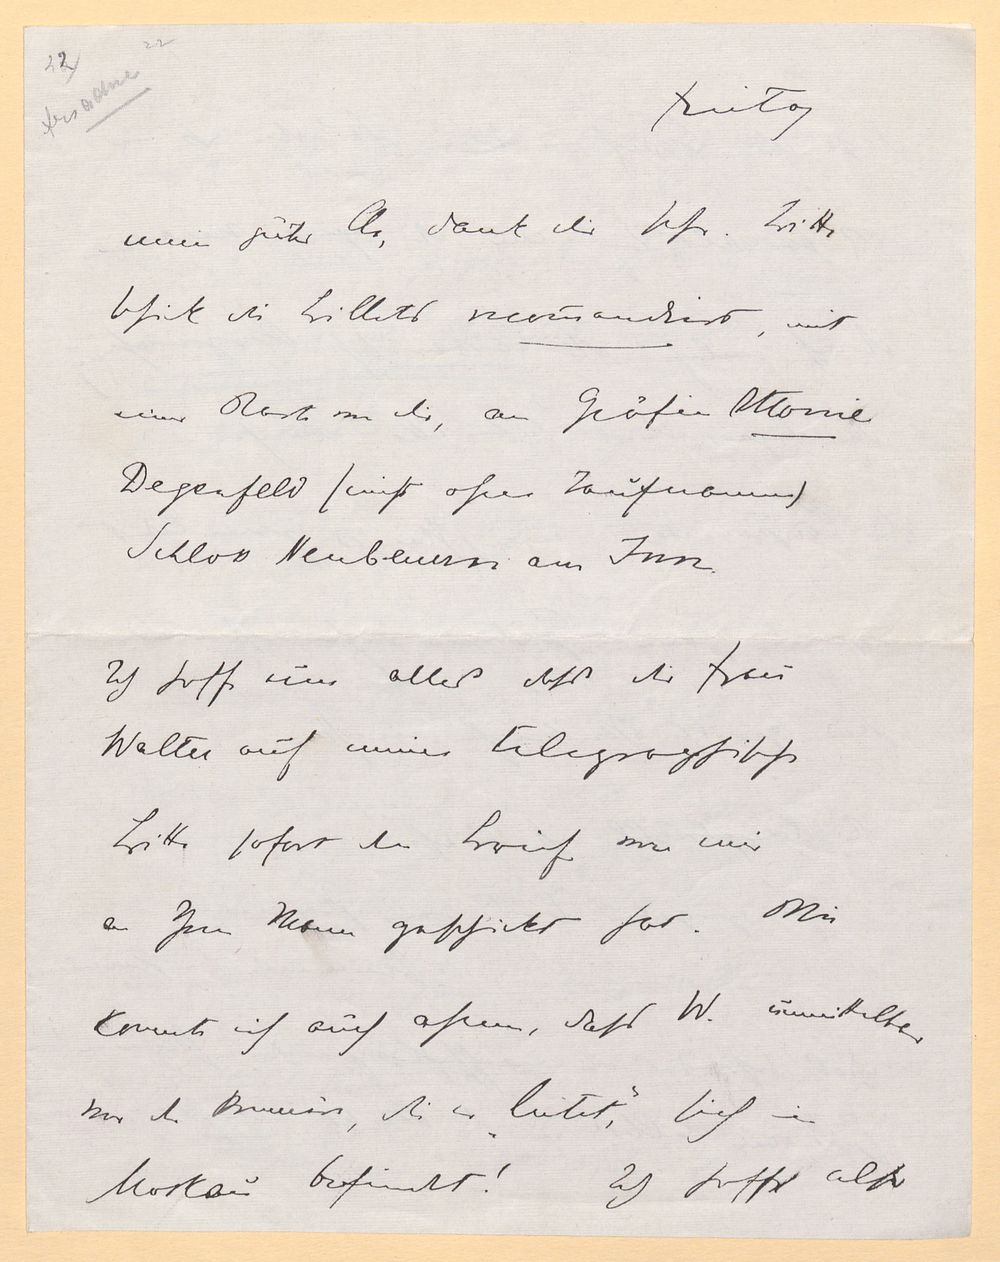 22
22
Freitag
mein guter Cle, dank dir sehr. Bitte
schick die Billets recomandiert, mit
einer Karte von dir, an Gräfin Ottonie
Degenfeld (nicht ohne Taufnamen)
Schloss Neubeuern am Inn.
Ich hoffe nun alles dass die Frau
Walter auf meine telegraphische
Bitte sofort den Brief von mir
an ihren Mann geschickt hat. Wie
konnte ich auch ahnen, dass W. unmittelbar
vor der Premiere, die er „leitet", sich in
Moskau befindet! Ich hoffe also